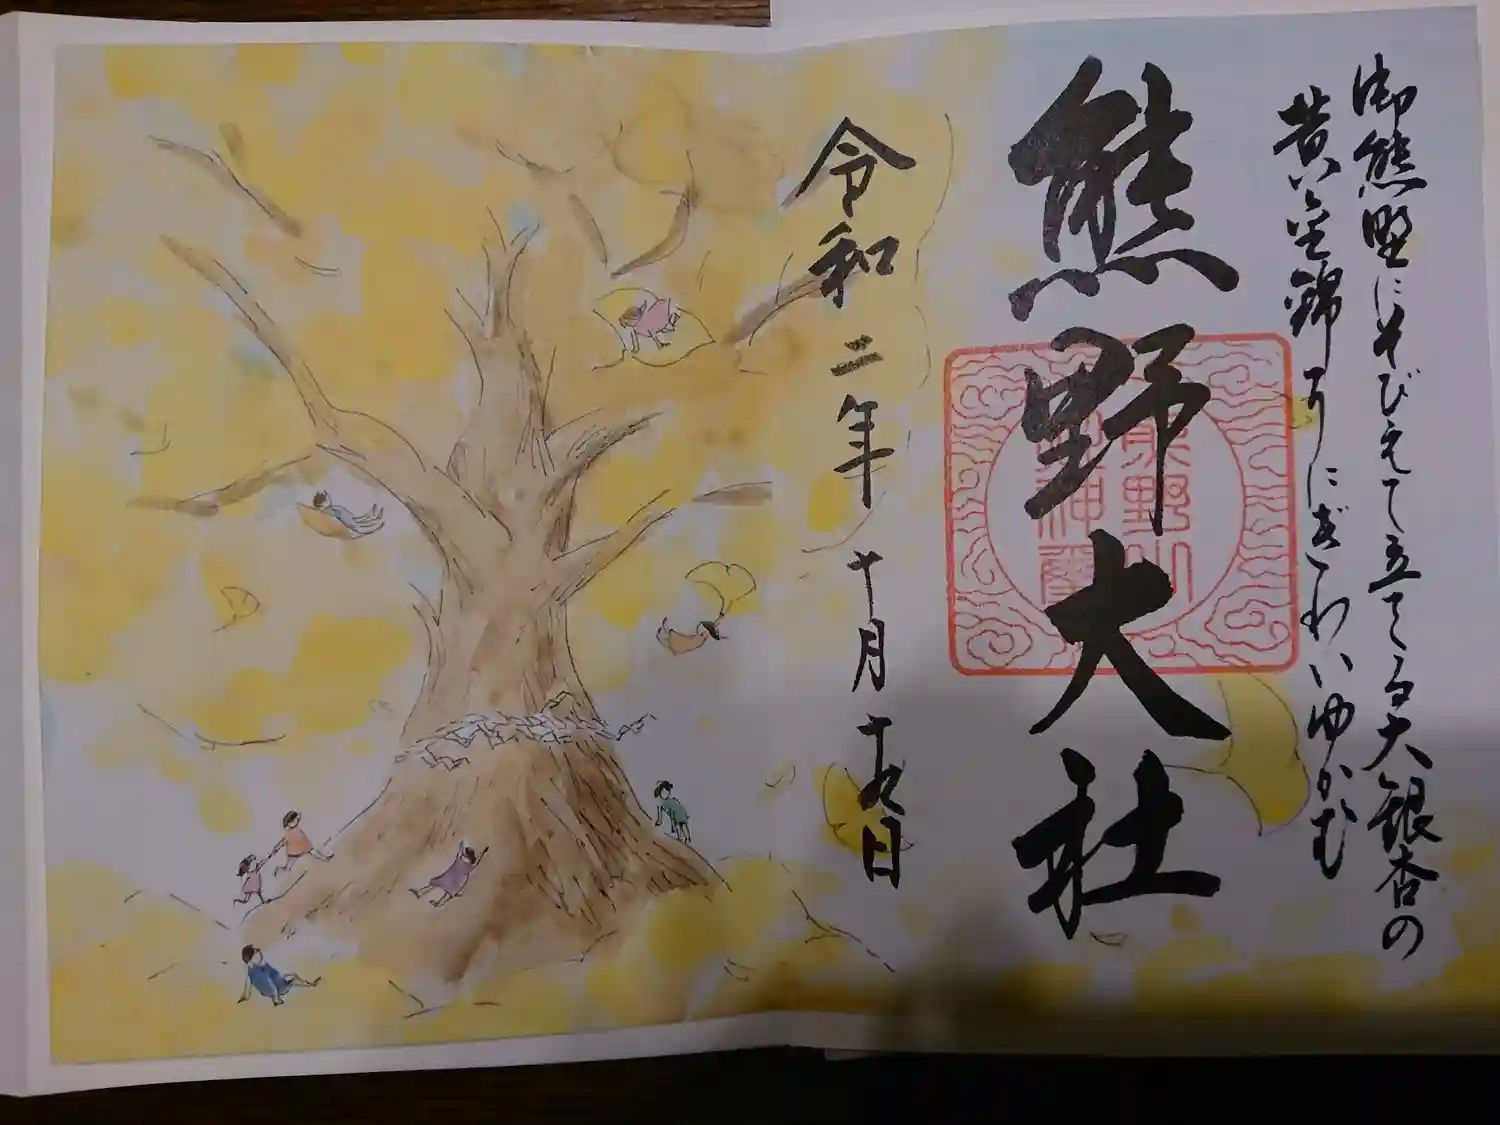 御熊野にそびえて立てる大銀杏の
黄金錦 にぎわいゆかむ
熊野大社
令和二年 十月 十九日